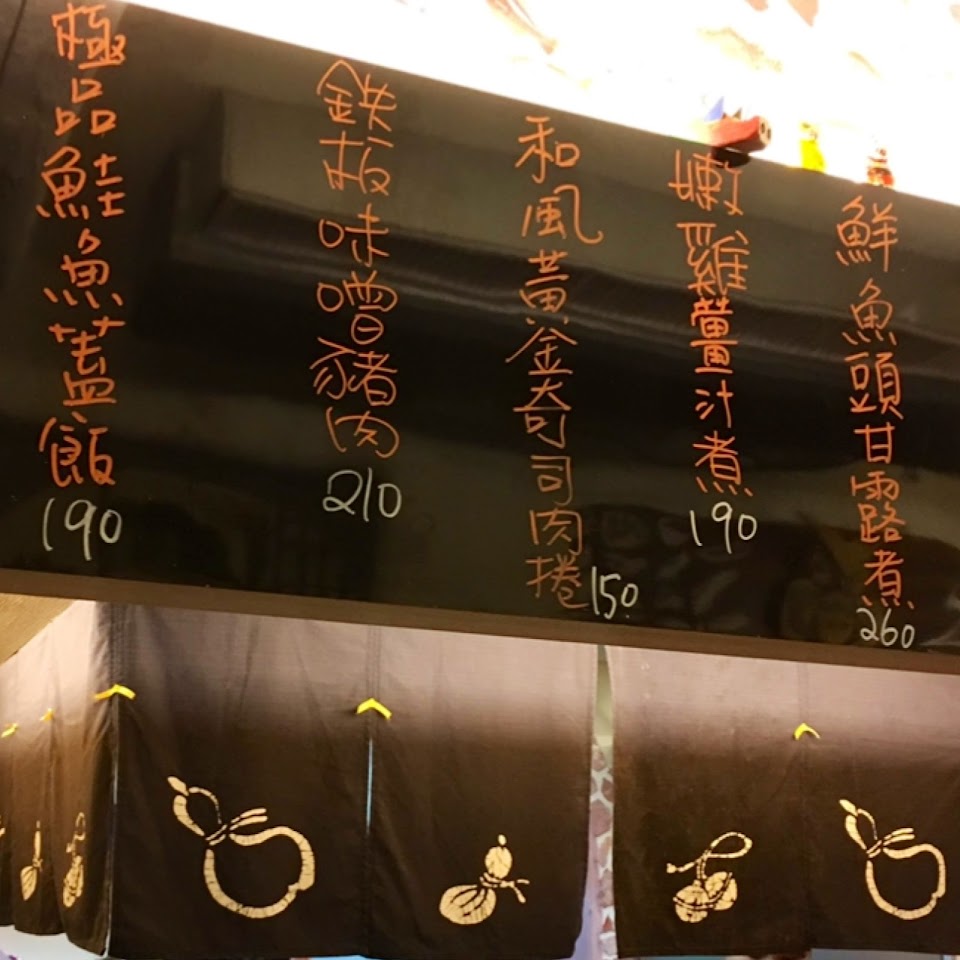 鮮魚頭甘露煮
260
嫩雞薑汁煮
190
和風黃金奇司司肉捲
150
鉄板味噌豬肉
210
極品鮭魚蓋飯
190